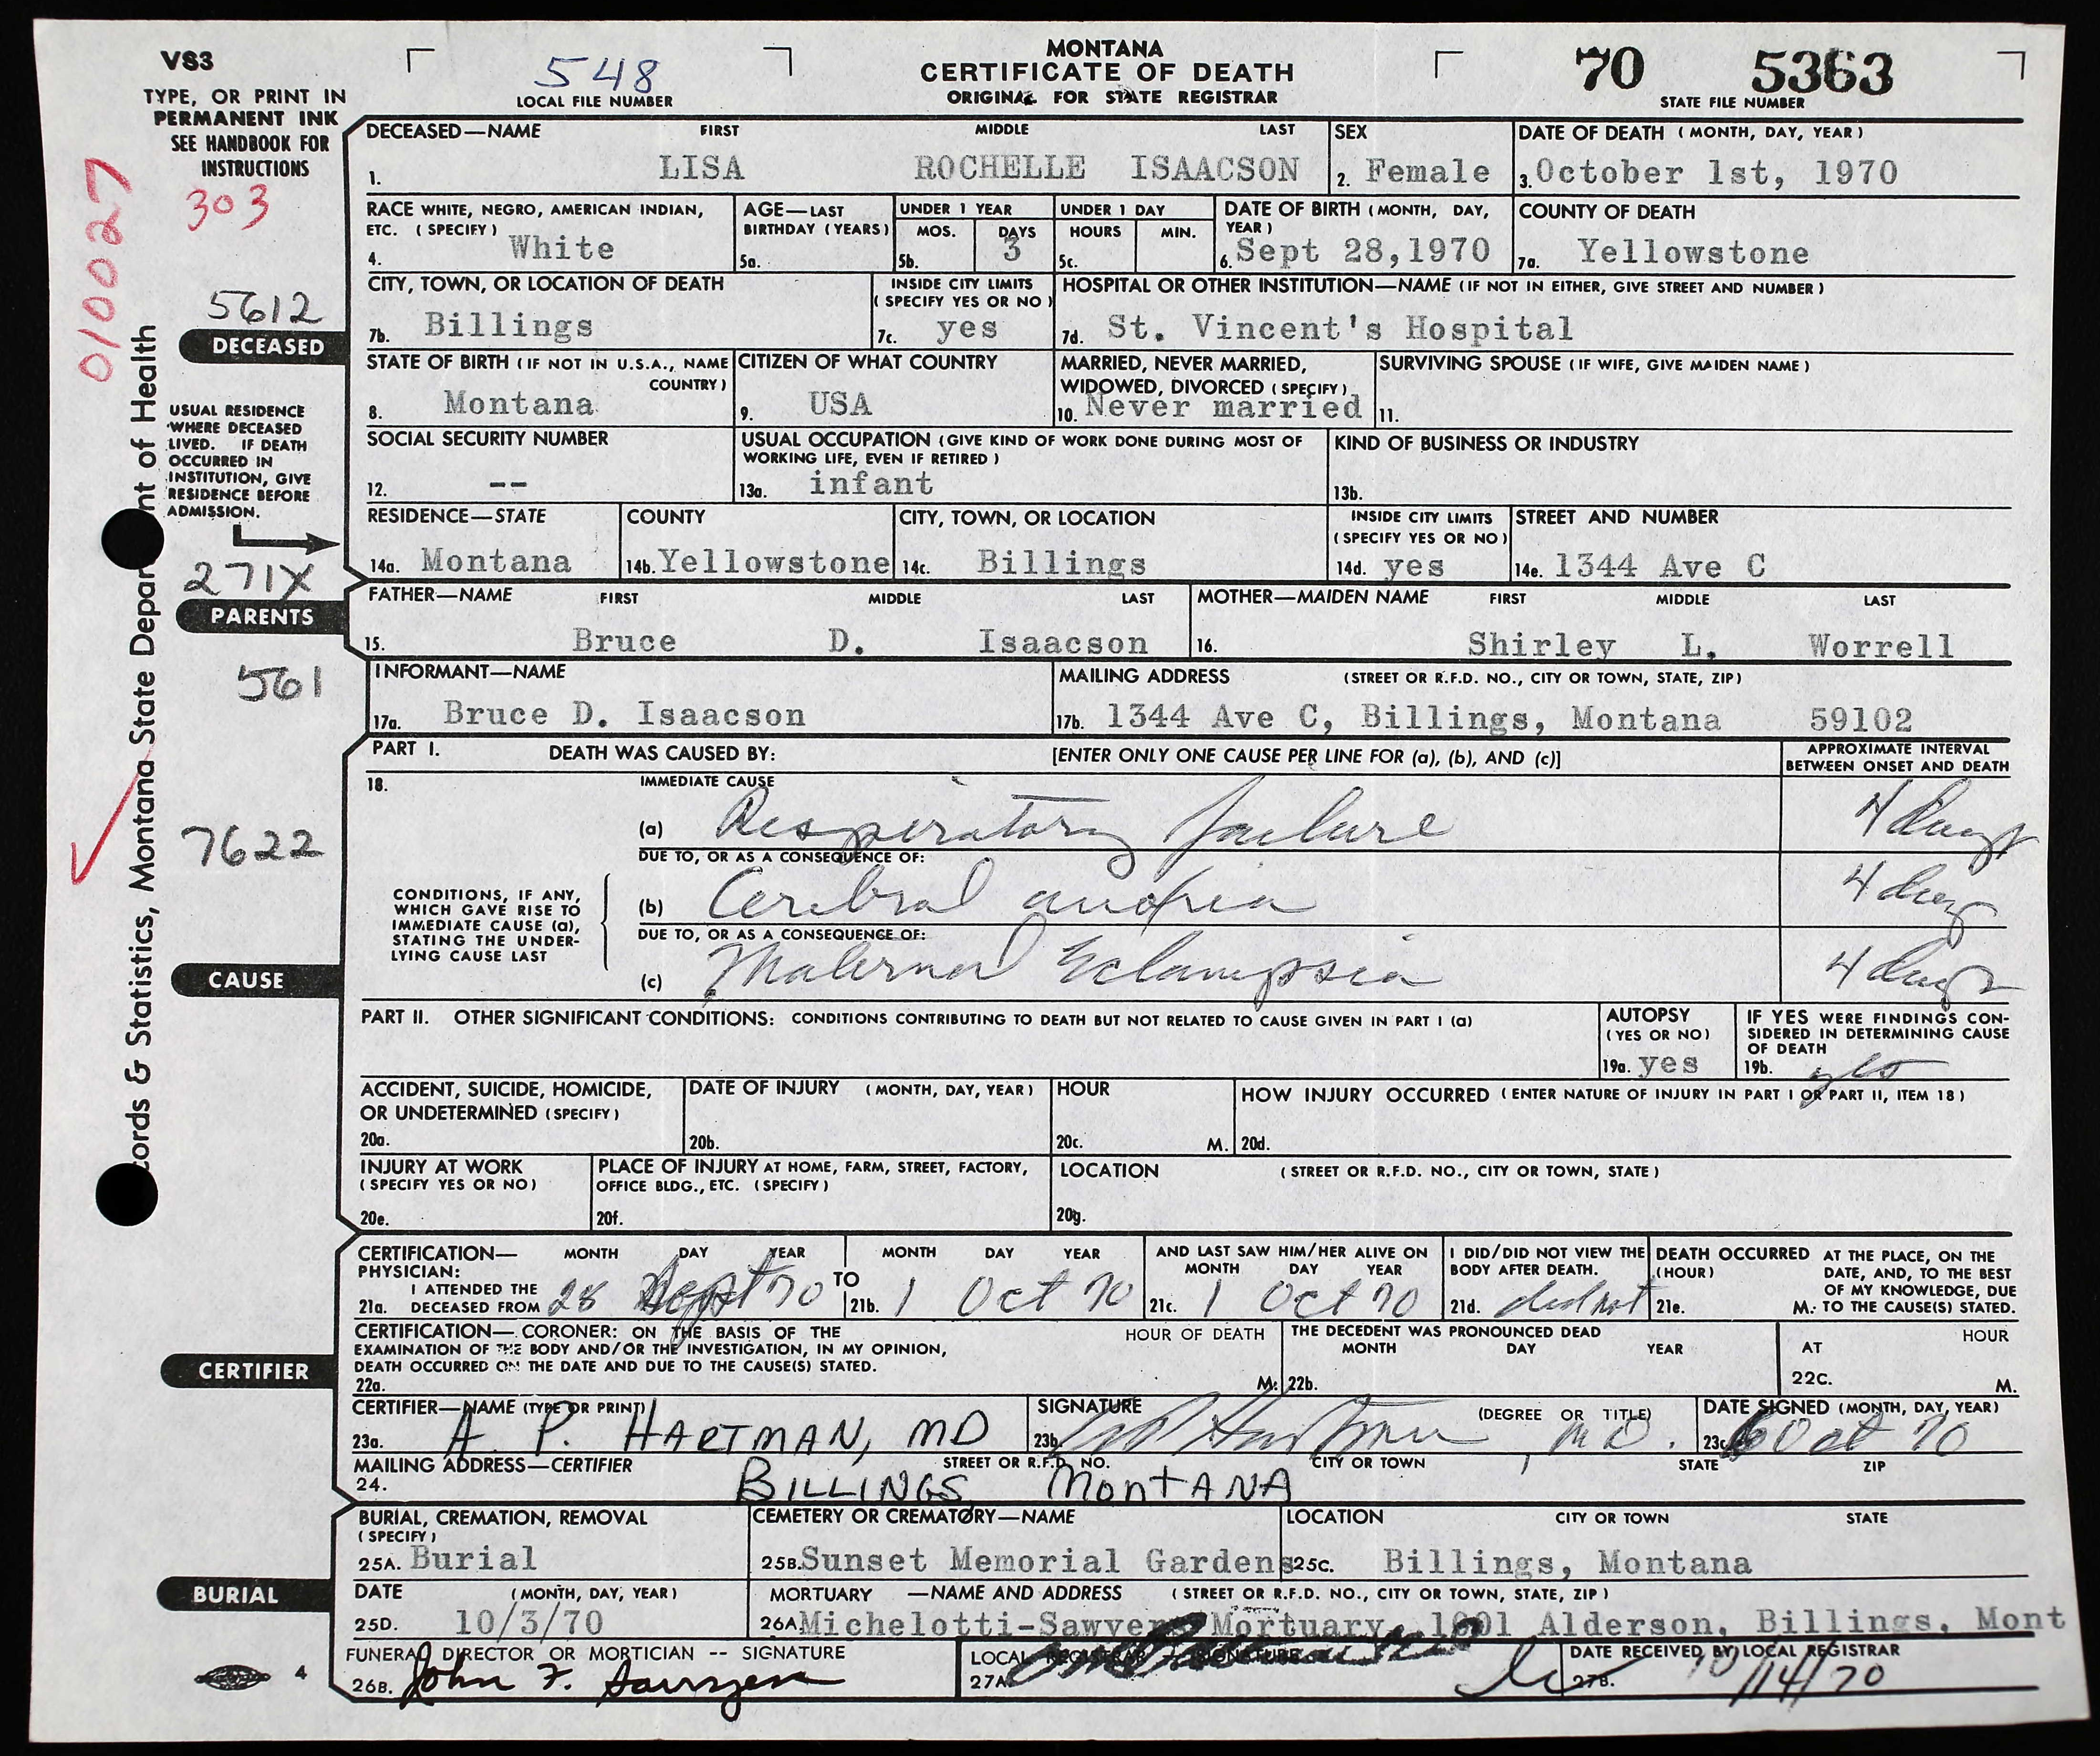 VS3
TYPE, OR PRINT IN
PERMANENT INK
SEE HANDBOOK FOR
INSTRUCTIONS
548
LOCAL FILE NUMBER
MONTANA
CERTIFICATE OF DEATH
ORIGINAL FOR STATE REGISTRAR
70 5363
STATE FILE NUMBER
010027
303
5612
DECEASED
USUAL RESIDENCE
WHERE DECEASED
LIVED. IF DEATH
OCCURRED IN
INSTITUTION, GIVE
RESIDENCE BEFORE
ADMISSION.
271X
PARENTS
561
7622
CAUSE
CERTIFIER
BURIAL
4
cords & Statistics, Montana State Depar nt of Health
DECEASED—NAME FIRST MIDDLE LAST
1. LISA ROCHELLE ISAACSON
SEX
2. Female
DATE OF DEATH (MONTH, DAY, YEAR)
3. October 1st, 1970
RACE WHITE, NEGRO, AMERICAN INDIAN,
ETC. (SPECIFY)
4. White
AGE—LAST
BIRTHDAY (YEARS)
5a.
UNDER 1 YEAR
MOS. DAYS
5b. 3
UNDER 1 DAY
HOURS MIN.
5c.
DATE OF BIRTH (MONTH, DAY,
YEAR)
6. Sept 28,1970
COUNTY OF DEATH
7a. Yellowstone
CITY, TOWN, OR LOCATION OF DEATH
7b. Billings
INSIDE CITY LIMITS
(SPECIFY YES OR NO)
7c. yes
HOSPITAL OR OTHER INSTITUTION—NAME (IF NOT IN EITHER, GIVE STREET AND NUMBER)
7d. St. Vincent's Hospital
STATE OF BIRTH (IF NOT IN U.S.A., NAME
COUNTRY)
8. Montana
CITIZEN OF WHAT COUNTRY
9. USA
MARRIED, NEVER MARRIED,
WIDOWED, DIVORCED (SPECIFY)
10. Never married
SURVIVING SPOUSE (IF WIFE, GIVE MAIDEN NAME)
11.
SOCIAL SECURITY NUMBER
12. --
USUAL OCCUPATION (GIVE KIND OF WORK DONE DURING MOST OF
WORKING LIFE, EVEN IF RETIRED)
13a. infant
KIND OF BUSINESS OR INDUSTRY
13b.
RESIDENCE—STATE
14a. Montana
COUNTY
14b. Yellowstone
CITY, TOWN, OR LOCATION
14c. Billings
INSIDE CITY LIMITS
(SPECIFY YES OR NO)
14d. yes
STREET AND NUMBER
14e. 1344 Ave C
FATHER—NAME FIRST MIDDLE LAST
15. Bruce D. Isaacson
MOTHER—MAIDEN NAME FIRST MIDDLE LAST
16. Shirley L. Worrell
INFORMANT—NAME
17a. Bruce D. Isaacson
MAILING ADDRESS (STREET OR R.F.D. NO., CITY OR TOWN, STATE, ZIP)
17b. 1344 Ave C, Billings, Montana 59102
PART I. DEATH WAS CAUSED BY: [ENTER ONLY ONE CAUSE PER LINE FOR (a), (b), AND (c)]
APPROXIMATE INTERVAL
BETWEEN ONSET AND DEATH
18.
IMMEDIATE CAUSE
(a) Respiratory failure 4 days
DUE TO, OR AS A CONSEQUENCE OF:
CONDITIONS, IF ANY,
WHICH GAVE RISE TO
IMMEDIATE CAUSE (a),
STATING THE UNDER-
LYING CAUSE LAST
(b) Cerebral anoxia 4 days
DUE TO, OR AS A CONSEQUENCE OF:
(c) Maternal Eclampsia 4 days
PART II. OTHER SIGNIFICANT CONDITIONS: CONDITIONS CONTRIBUTING TO DEATH BUT NOT RELATED TO CAUSE GIVEN IN PART I (a)
AUTOPSY
(YES OR NO)
19a. yes
IF YES WERE FINDINGS CON-
SIDERED IN DETERMINING CAUSE
OF DEATH
19b. yes
ACCIDENT, SUICIDE, HOMICIDE,
OR UNDETERMINED (SPECIFY)
20a.
DATE OF INJURY (MONTH, DAY, YEAR)
20b.
HOUR
20c. M.
HOW INJURY OCCURRED (ENTER NATURE OF INJURY IN PART I OR PART II, ITEM 18)
20d.
INJURY AT WORK
(SPECIFY YES OR NO)
20e.
PLACE OF INJURY AT HOME, FARM, STREET, FACTORY,
OFFICE BLDG., ETC. (SPECIFY)
20f.
LOCATION (STREET OR R.F.D. NO., CITY OR TOWN, STATE)
20g.
CERTIFICATION— MONTH DAY YEAR
PHYSICIAN:
I ATTENDED THE
21a. DECEASED FROM 28 Sept 70
TO
MONTH DAY YEAR
21b. 1 Oct 70
AND LAST SAW HIM/HER ALIVE ON
MONTH DAY YEAR
21c. 1 Oct 70
I DID/DID NOT VIEW THE
BODY AFTER DEATH.
21d. did not
DEATH OCCURRED
(HOUR)
21e. M.
AT THE PLACE, ON THE
DATE, AND, TO THE BEST
OF MY KNOWLEDGE, DUE
TO THE CAUSE(S) STATED.
CERTIFICATION—CORONER: ON THE BASIS OF THE
EXAMINATION OF THE BODY AND/OR THE INVESTIGATION, IN MY OPINION,
DEATH OCCURRED ON THE DATE AND DUE TO THE CAUSE(S) STATED.
22a.
HOUR OF DEATH
M.
THE DECEDENT WAS PRONOUNCED DEAD
MONTH DAY YEAR
22b.
AT HOUR
22C. M.
CERTIFIER—NAME (TYPE OR PRINT)
23a. A. P. HARTMAN, MD
SIGNATURE (DEGREE OR TITLE)
23b. A P Hartman, M.D.
DATE SIGNED (MONTH, DAY, YEAR)
23c. 6 Oct 70
MAILING ADDRESS—CERTIFIER STREET OR R.F.D. NO. CITY OR TOWN STATE ZIP
24. BILLINGS, MontANA
BURIAL, CREMATION, REMOVAL
(SPECIFY)
25A. Burial
CEMETERY OR CREMATORY—NAME
25B. Sunset Memorial Gardens
LOCATION CITY OR TOWN STATE
25C. Billings, Montana
DATE (MONTH, DAY, YEAR)
25D. 10/3/70
MORTUARY —NAME AND ADDRESS (STREET OR R.F.D. NO., CITY OR TOWN, STATE, ZIP)
26A. Michelotti-Sawyers Mortuary, 1001 Alderson, Billings, Mont
FUNERAL DIRECTOR OR MORTICIAN -- SIGNATURE
26B. John F. Sawyer
LOCAL REGISTRAR -- SIGNATURE
27A.
DATE RECEIVED BY LOCAL REGISTRAR
27B. 10/14/70